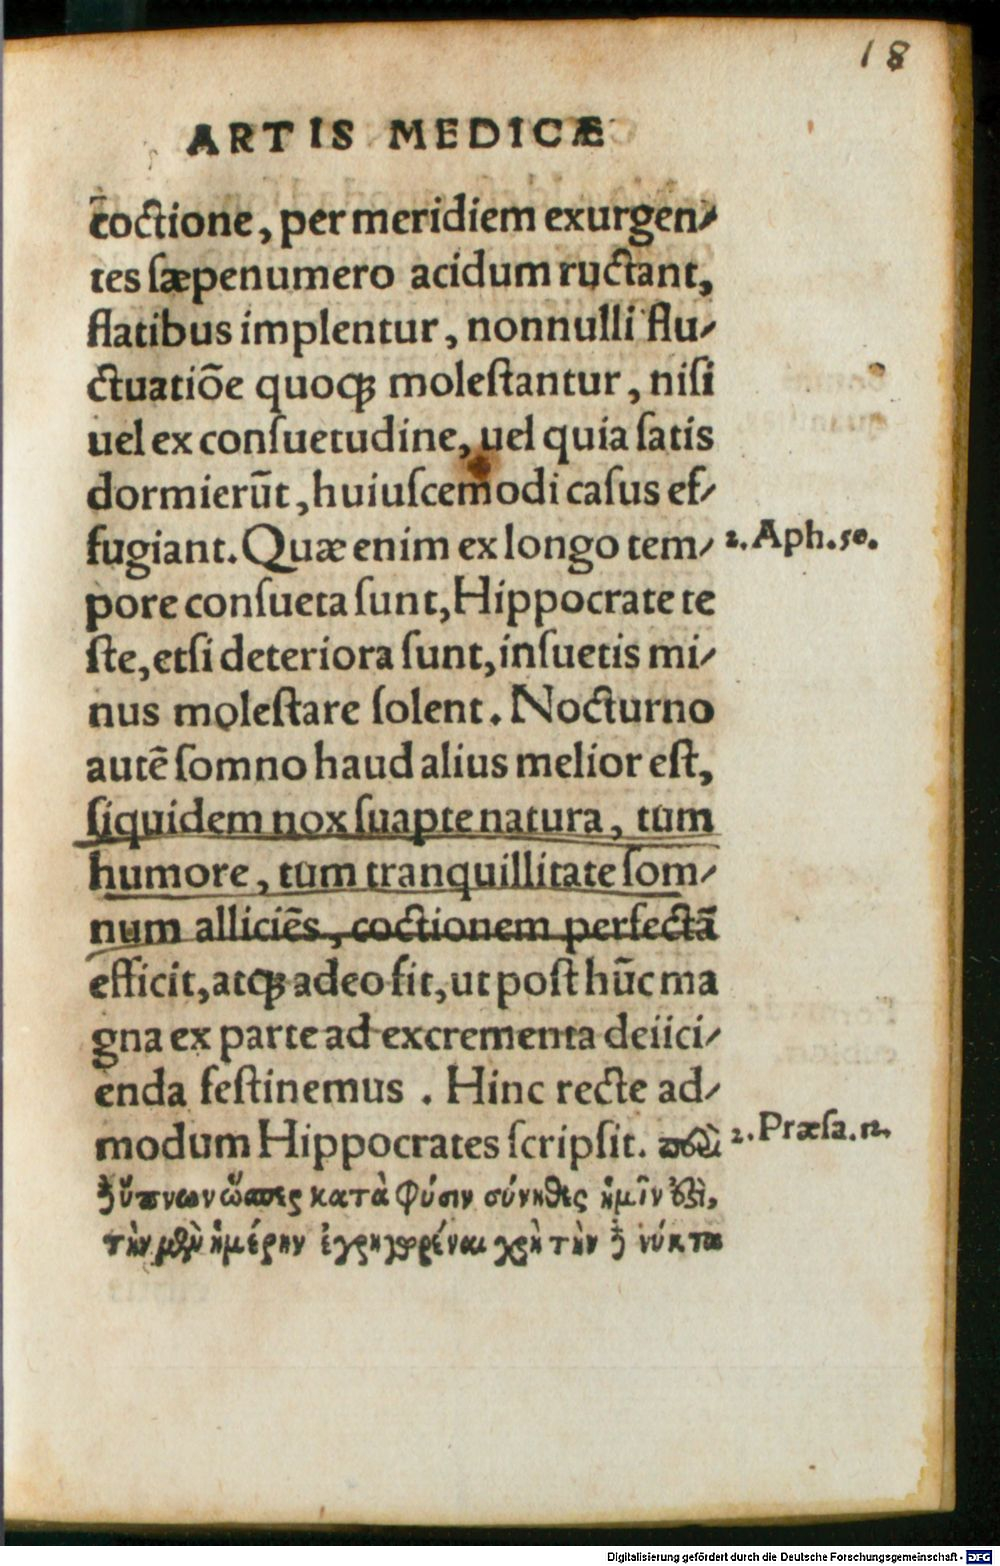 18
ARTIS MEDICÆ
coctione, per meridiem exurgen⸗
tes sæpenumero acidum ructant,
flatibus implentur, nonnulli flu⸗
ctuatiõe quoqꝫ molestantur, nisi
uel ex consuetudine, uel quia satis
dormierũt, huiuscemodi casus ef⸗
fugiant. Quæ enim ex longo tem⸗ 2. Aph. 50.
pore consueta sunt, Hippocrate te
ste, etsi deteriora sunt, insuetis mi⸗
nus molestare solent. Nocturno
autẽ somno haud alius melior est,
siquidem nox suapte natura, tum
humore, tum tranquillitate som⸗
num alliciẽs, coctionem perfectã
efficit, atqꝫ adeo fit, ut post hũc ma
gna ex parte ad excrementa deiici⸗
enda festinemus. Hinc recte ad⸗
modum Hippocrates scripsit. περὶ 2. Præsa. 12.
ὕπνων ὥσπερ κατὰ φύσιν σύνηθες ἡμῖν ἐστὶ,
τὴν μὲν ἡμέρην ἐγρηγορέναι χρὴ τὴν νύκτα
Digitalisierung gefördert durch die Deutsche Forschungsgemeinschaft - DFG